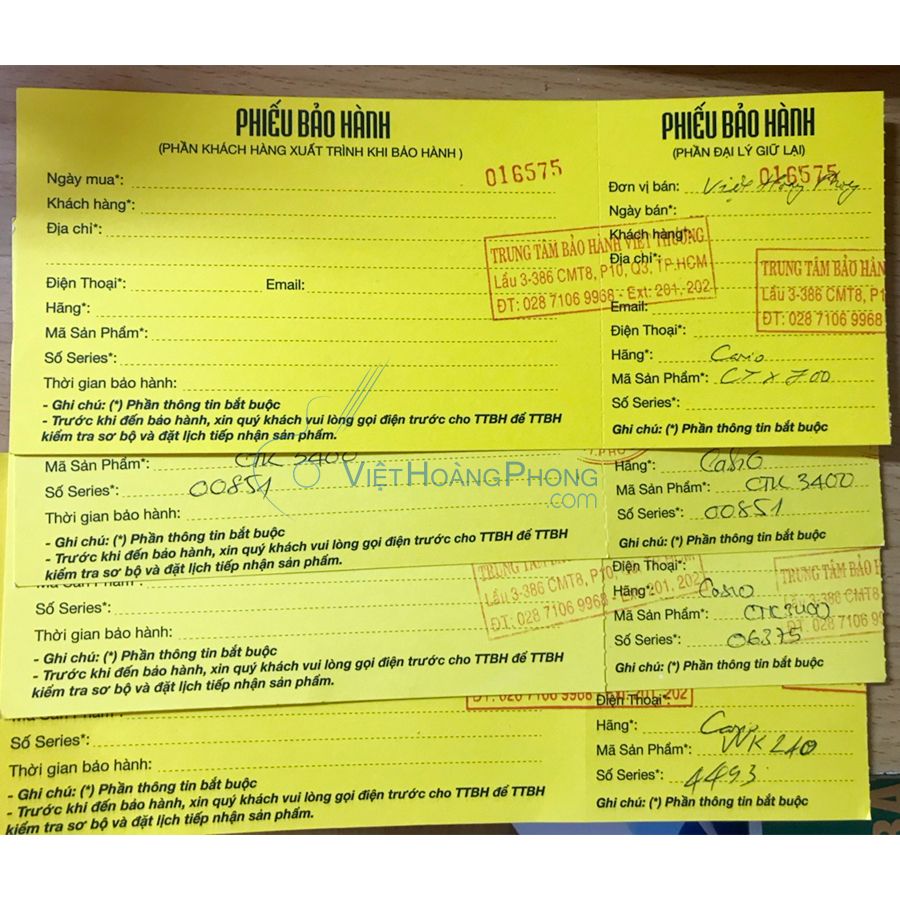 PHIẾU BẢO HÀNH
(PHẦN KHÁCH HÀNG XUẤT TRÌNH KHI BẢO HÀNH )
016575
Ngày mua*:
Khách hàng*:
Địa chỉ*:
Điện Thoại*: Email:
Hãng*:
Mã Sản Phẩm*:
Số Series*:
Thời gian bảo hành:
- Ghi chú: (*) Phần thông tin bắt buộc
- Trước khi đến bảo hành, xin quý khách vui lòng gọi điện trước cho TTBH để TTBH
kiểm tra sơ bộ và đặt lịch tiếp nhận sản phẩm.
TRUNG TÂM BẢO HÀNH VIỆT THƯƠNG
Lầu 3-386 CMT8, P10, Q3, TP.HCM
ĐT: 028 7106 9968 - Ext: 201, 202
PHIẾU BẢO HÀNH
(PHẦN ĐẠI LÝ GIỮ LẠI)
016575
Đơn vị bán: Việt Hoàng Phong
Ngày bán*:
Khách hàng*:
Địa chỉ*:
Email:
Điện Thoại*:
Hãng*: Casio
Mã Sản Phẩm*: CT X 700
Số Series*:
Ghi chú: (*) Phần thông tin bắt buộc
TRUNG TÂM BẢO HÀN
Lầu 3-386 CMT8, P1
ĐT: 028 7106 9968
VIỆTHOÀNGPHONG
.com
Mã Sản Phẩm*: CTK 3400
Số Series*: 00851
Thời gian bảo hành:
- Ghi chú: (*) Phần thông tin bắt buộc
- Trước khi đến bảo hành, xin quý khách vui lòng gọi điện trước cho TTBH để TTBH
kiểm tra sơ bộ và đặt lịch tiếp nhận sản phẩm.
Hãng*: Casio
Mã Sản Phẩm*: CTK 3400
Số Series*: 00851
Ghi chú: (*) Phần thông tin bắt buộc
Mã Sản Phẩm*:
Số Series*:
Thời gian bảo hành:
- Ghi chú: (*) Phần thông tin bắt buộc
- Trước khi đến bảo hành, xin quý khách vui lòng gọi điện trước cho TTBH để TTBH
kiểm tra sơ bộ và đặt lịch tiếp nhận sản phẩm.
Lầu 3-386 CMT8, P10,
ĐT: 028 7106 9968 - Ext: 201, 202
Điện Thoại*:
Hãng*: Casio
Mã Sản Phẩm*: CTK3400
Số Series*: 06375
Ghi chú: (*) Phần thông tin bắt buộc
TRUNG TÂM BẢO H
3-386 CMT8
028 7106 99
Mã Sản Phẩm*:
Số Series*:
Thời gian bảo hành:
- Ghi chú: (*) Phần thông tin bắt buộc
- Trước khi đến bảo hành, xin quý khách vui lòng gọi điện trước cho TTBH để TTBH
kiểm tra sơ bộ và đặt lịch tiếp nhận sản phẩm.
ĐT: 028 7106 9968 - Ext: 201, 202
Điện Thoại*:
Hãng*: Casio
Mã Sản Phẩm*: WK 240
Số Series*: 4493
Ghi chú: (*) Phần thông tin bắt buộc